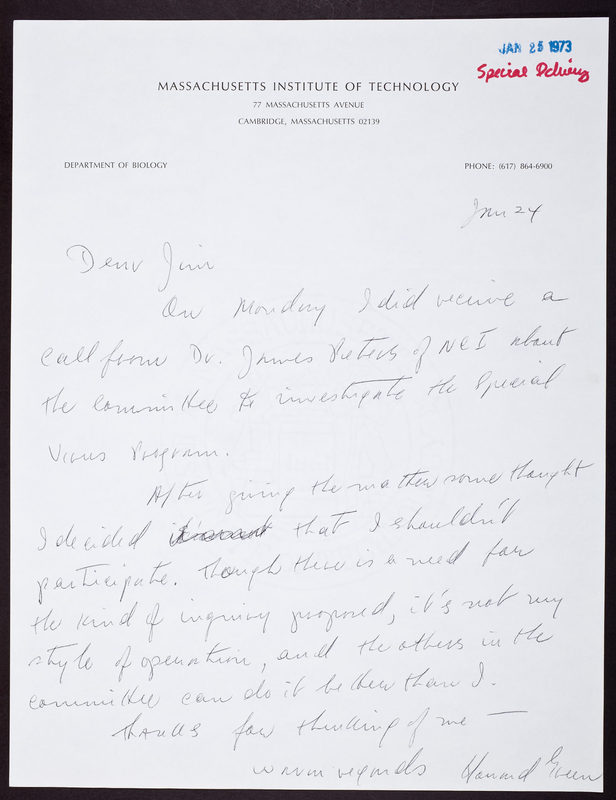 JAN 25 1973
Special Delivery
MASSACHUSETTS INSTITUTE OF TECHNOLOGY
77 MASSACHUSETTS AVENUE
CAMBRIDGE, MASSACHUSETTS 02139
DEPARTMENT OF BIOLOGY
PHONE: (617) 864-6900
Jan 24
Dear Jim
On Monday I did receive a
call from Dr. James Peters of NCI about
the committee to investigate the Special
Virus Program.
After giving the matter some thought
I decided that I shouldn't
participate. Though there is a need for
the kind of inquiry proposed, it's not my
style of operation, and the others in the
committee can do it better than I.
Thanks for thinking of me —
warm regards Howard Green